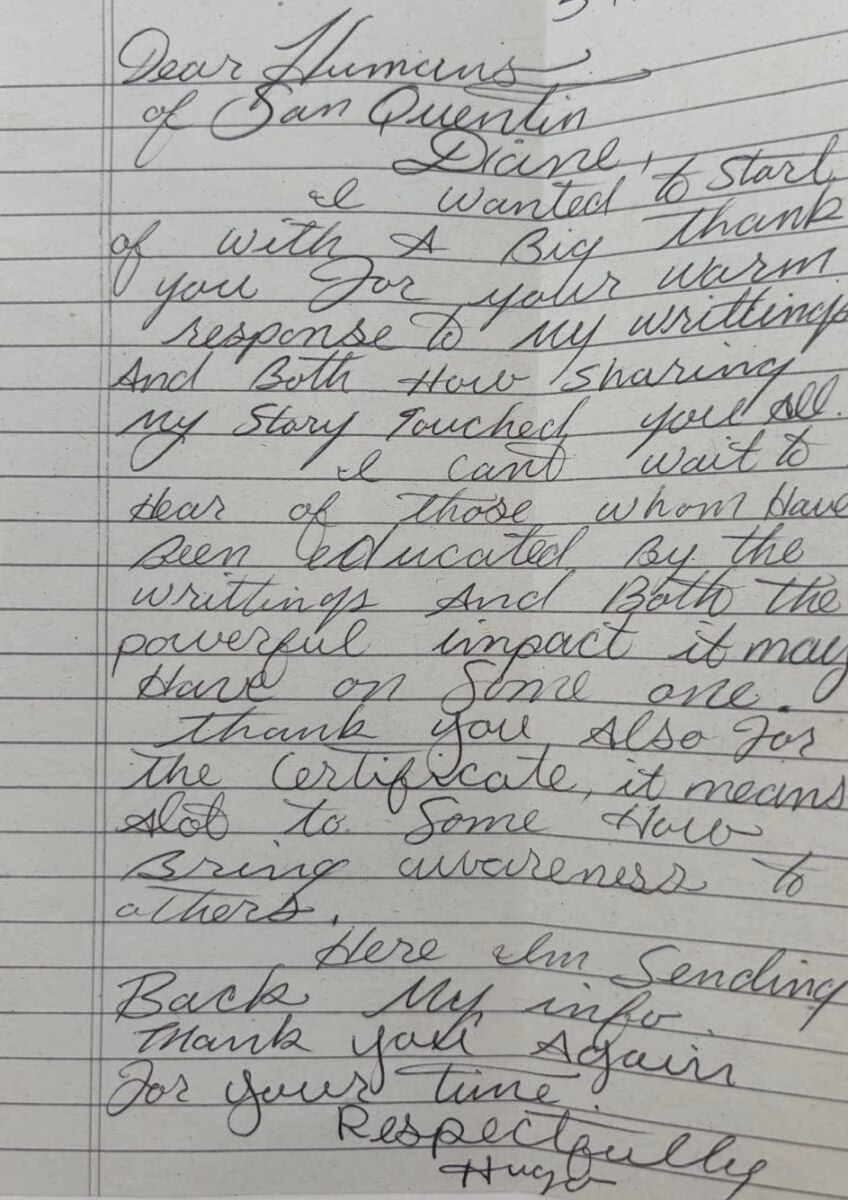 Dear Humans
of San Quentin
Diane,
I wanted to Start
of with A Big Thank
you For your warm
response to my writtings
And Both How Sharing
my Story Touched you All.
I cant wait to
Hear of those whom Have
Been educated By the
writtings And Both the
powerful impact it may
Have on Some one.
Thank you Also For
the Certificate, it means
Alot to Some How
Bring awareness to
others.
Here Im Sending
Back My info.
Thank you Again
For your time.
Respectfully
Hugo